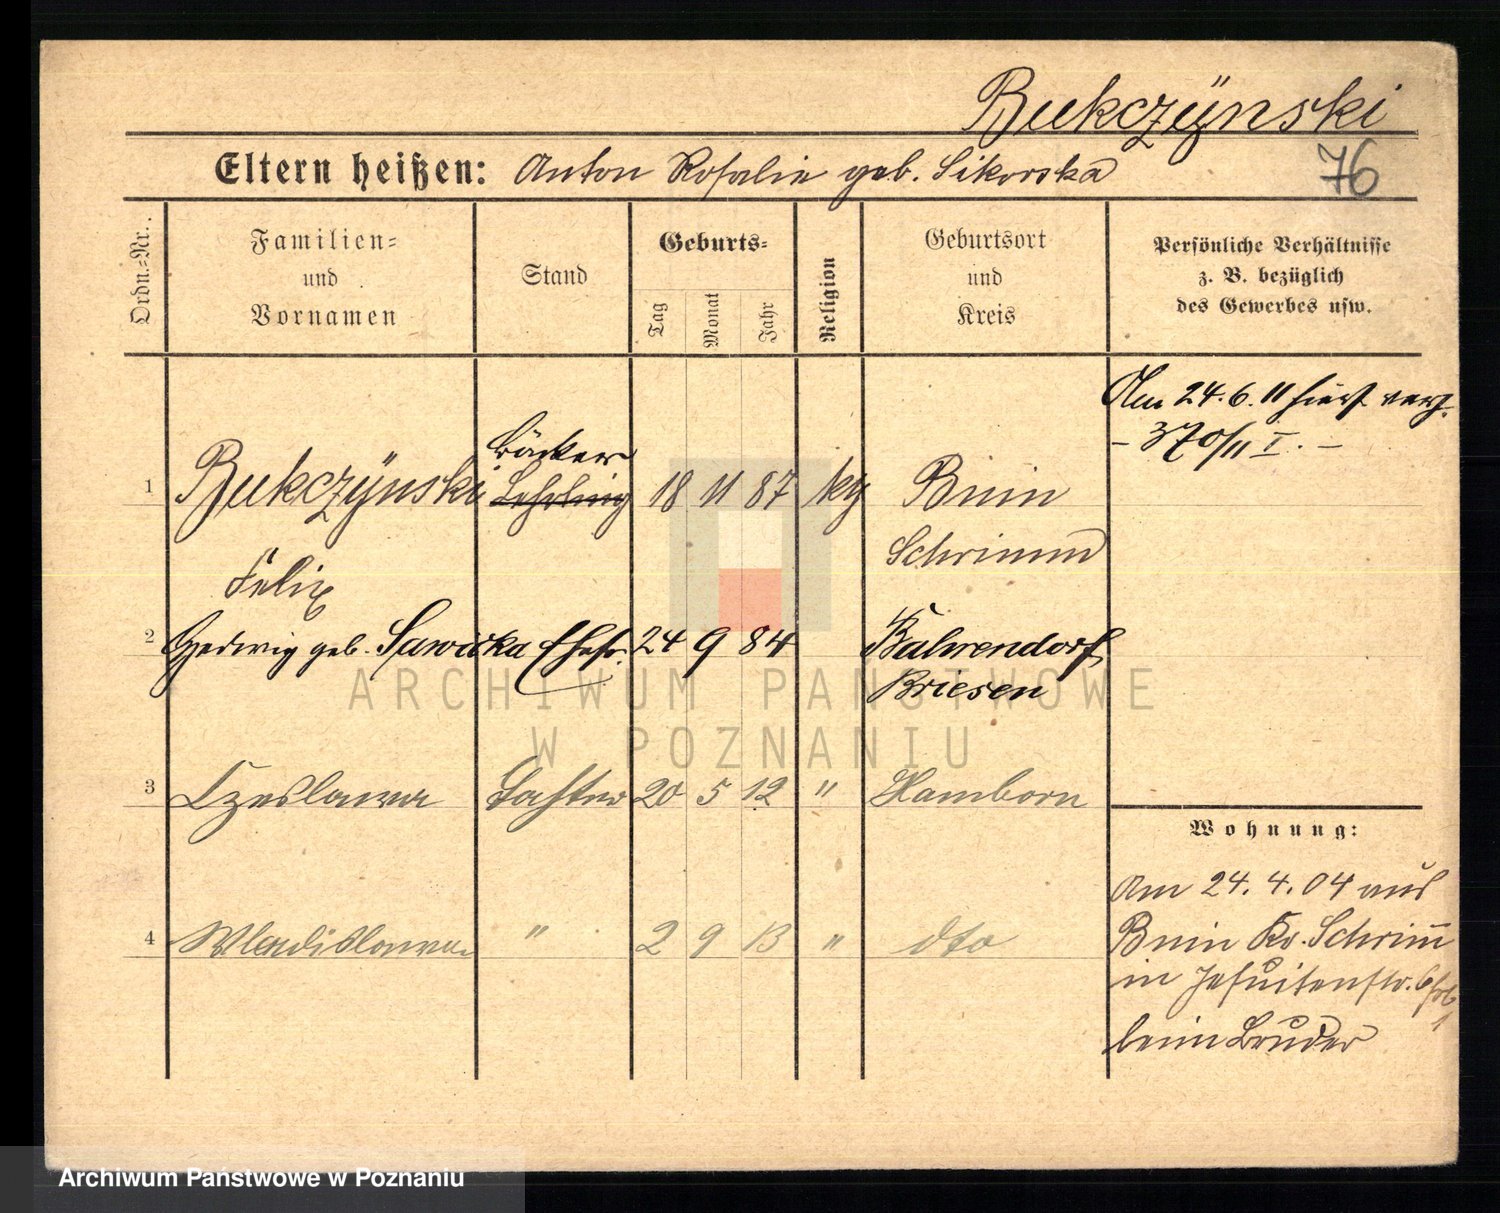 Bukczÿnski
76
Eltern heißen: Anton Rosalie geb. Sikorska
Ordn.-Nr.
Familien-
und
Vornamen
Stand
Geburts-
Tag
Monat
Jahr
Religion
Geburtsort
und
Kreis
Persönliche Verhältnisse
z. B. bezüglich
des Gewerbes usw.
Am 24.6.11 hier verz.
– 370/11 I. –
Bäcker
1 Bukczÿnski Lehrling 18 11 87 kth Bnin
Felix Schrimm
2 Hedwig geb. Sawicka Ehefr. 24 9 84 Bahrendorf
Briesen
3 Czeslawa Tochter 20 5 12 " Hamborn
4 Wladislawa " 2 9 13 " dto
Wohnung:
Am 24.4.04 aus
Bnin Kr. Schrim̄
in Jesuitenstr. 6
beim Bruder
ARCHIWUM PAŃSTWOWE
W POZNANIU
Archiwum Państwowe w Poznaniu